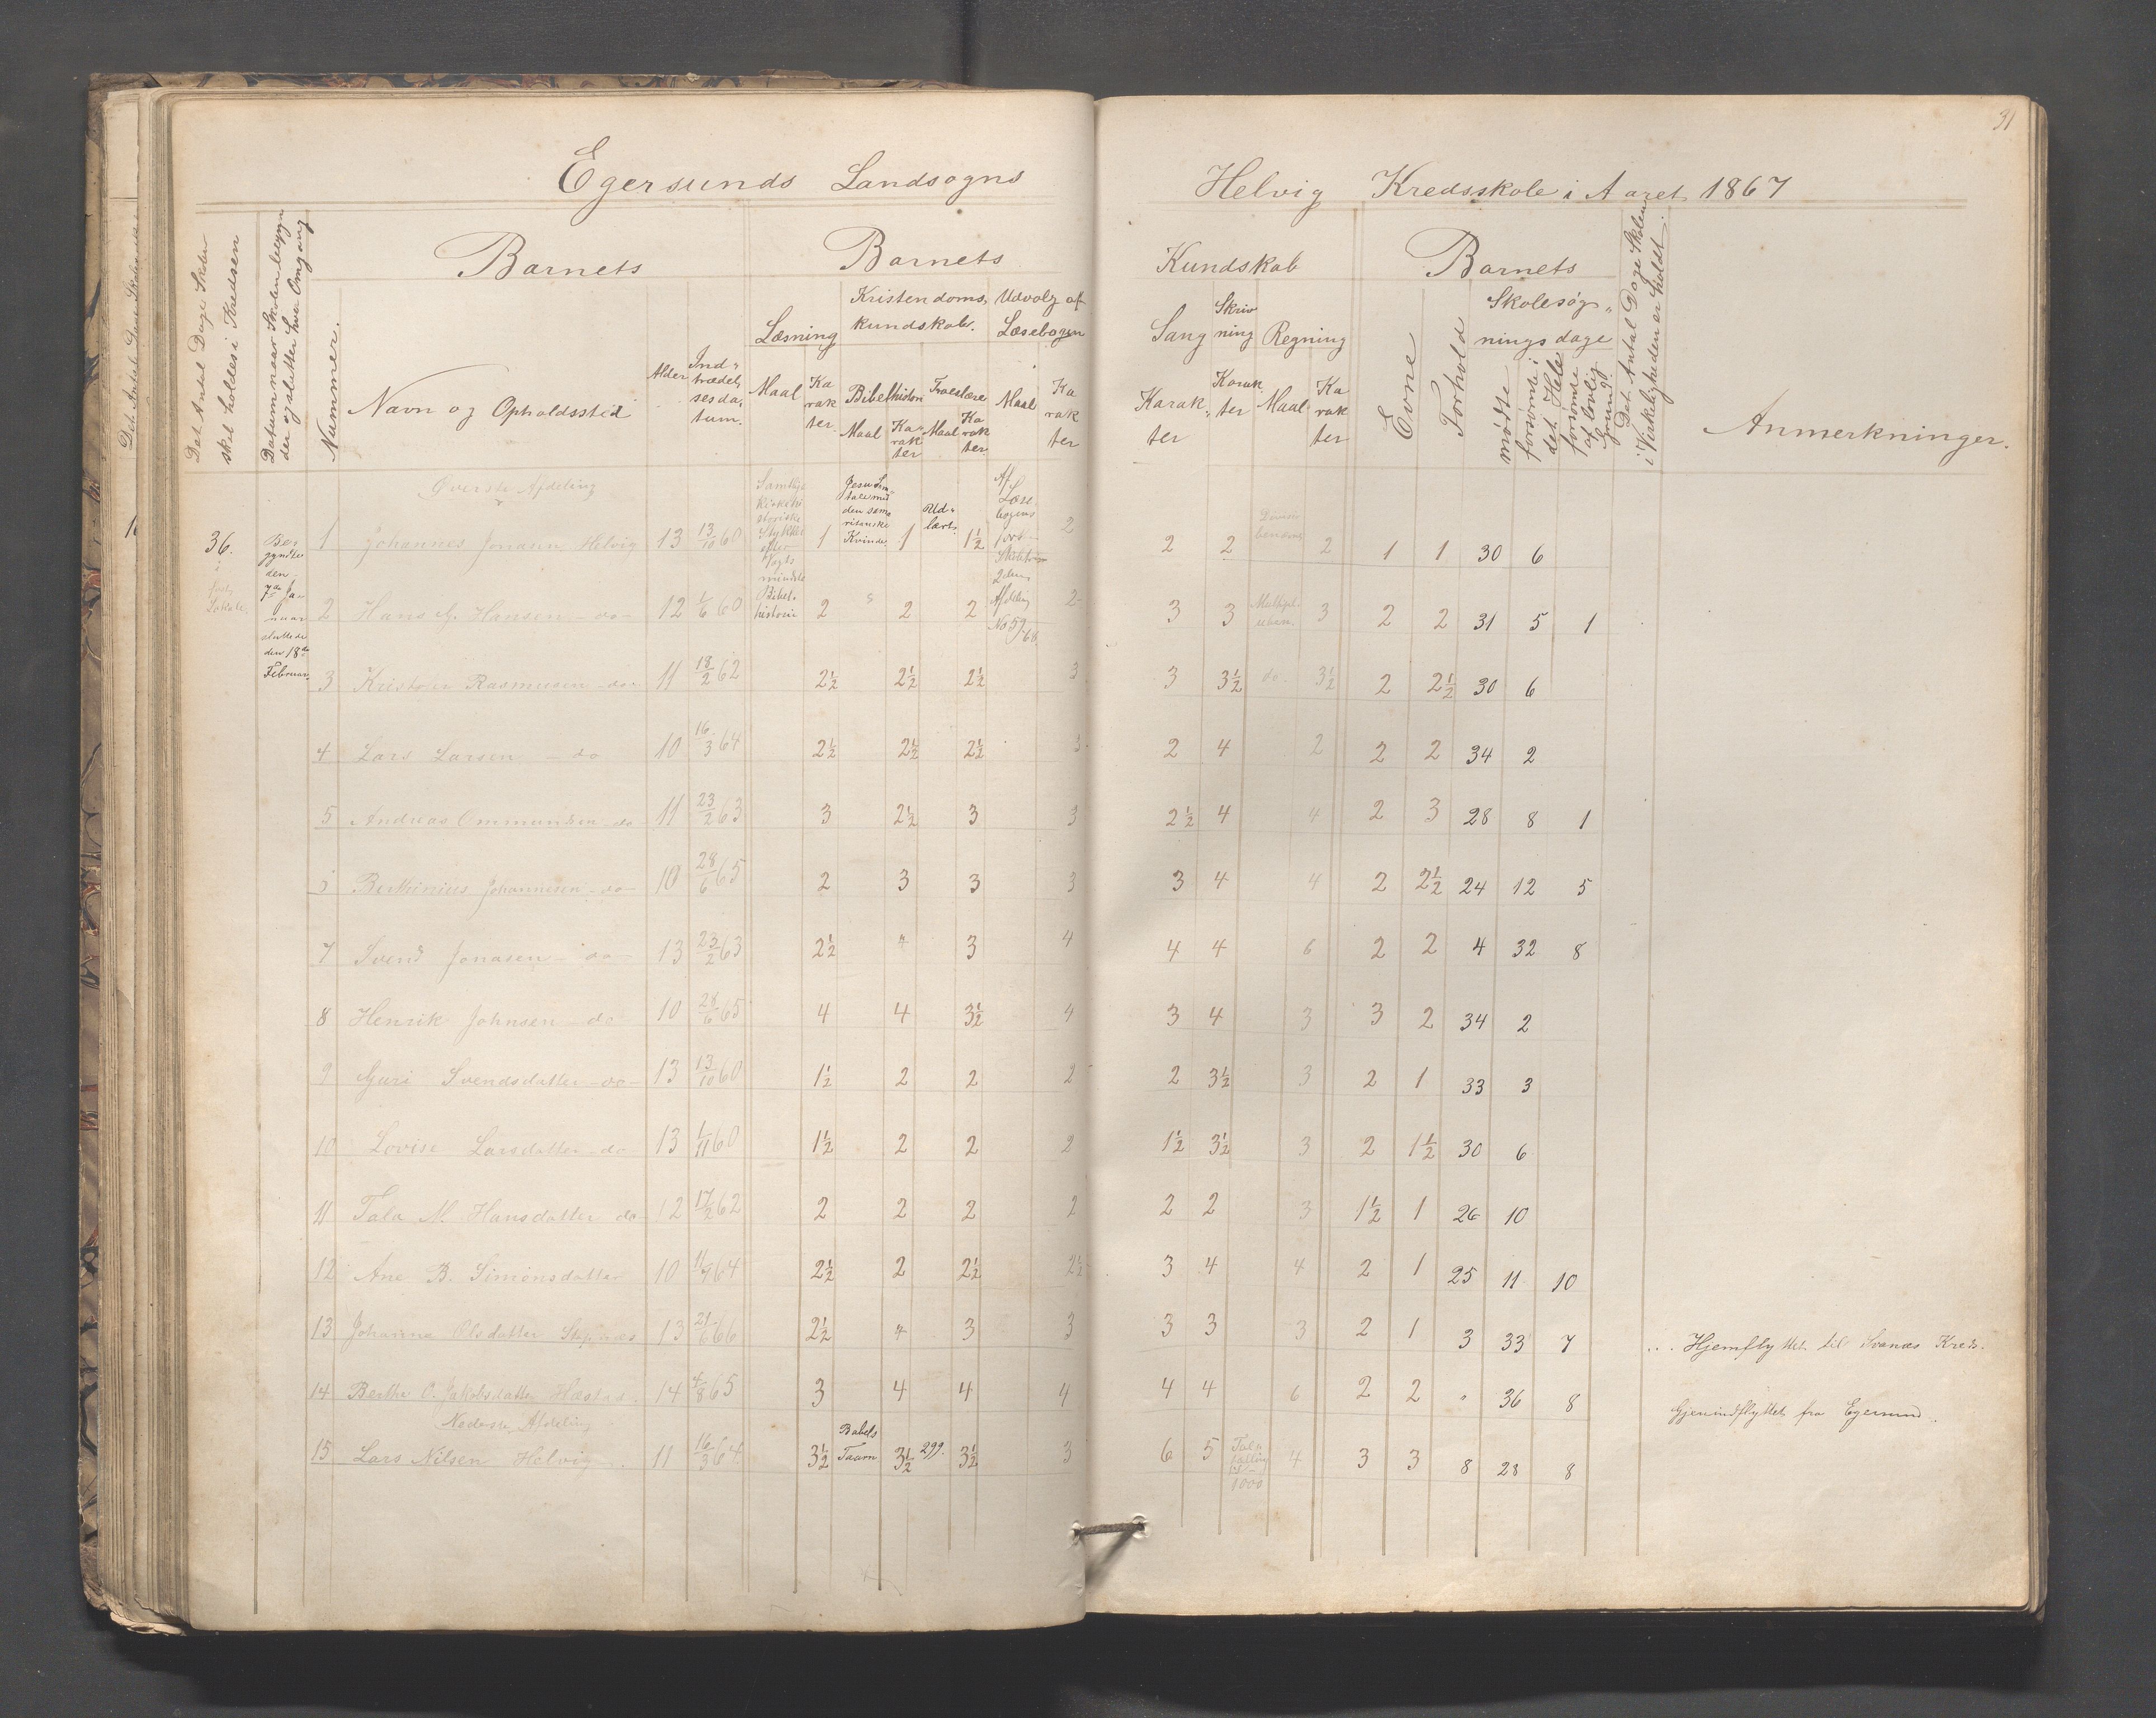 31
Egersunds Landsogns
Helvig Kredsskole i Aaret 1867
Det Antal Dage Skolen
skal holdes i Kredsen
Datum naar Skolen begyn
der og slutter hver Omgang
Nummer.
Barnets
Navn og Opholdssted
Alder
Ind-
trædel-
sesda-
tum.
Barnets
Læsning
Maal
Ka
rak
ter.
Kristendoms-
kundskab.
Bibelhistori
Maal
Ka-
rak
ter
Troeslære
Maal
Ka
rak
ter.
Udvalg af
Læsebogen
Maal
Ka
rak
ter
Kundskab
Sang
Karak-
ter
Skriv
ning
Karak
ter
Regning
Maal
Ka
rak
ter
Barnets
Evne
Forhold
Skolesøg-
ningsdage
mødte
forsømte i
det Hele
forsømte
af lovlig
Grund
Det Antal Dage Skolen
i Virkeligheden er holdt.
Anmerkninger.
Øverste Afdeling
36.
Lokale.
Be-
gyndte
den
7de Ja-
nuar
sluttede
den 18de
Februar
Bibel-
historie
den sama
ritanske
Kvinde.
Ud-
lært.
Af
Læse
bogens
2den
Afdeling
No 59-68.
1 Johannes Jonasen Helvig 13 13/10 60 1 1 1½ 2 2 2 2 1 1 30 6
2 Hans G. Hansen - do - 12 1/6 60 2 2 2 2 3 3 3 2 2 31 5 1
3 Kristofer Rasmusen - do - 11 18/2 62 2½ 2½ 2½ 3 3 3½ do. 3½ 2 2½ 30 6
4 Lars Larsen - do 10 16/3 64 2½ 2½ 2½ 3 2 4 2 2 2 34 2
5 Andreas Ommundsen do 11 23/2 63 3 2½ 3 3 2½ 4 4 2 3 28 8 1
Berthinius Johannesen - do - 10 28/6 65 2 3 3 3 3 4 4 2 2½ 24 12 5
7 Svend Jonasen - do - 13 23/2 63 2½ 4 3 4 4 4 6 2 2 4 32 8
8 Henrik Johnsen - do 10 28/6 65 4 4 3½ 4 3 4 3 3 2 34 2
9 Guri Svendsdatter - do - 13 13/10 60 1½ 2 2 2 2 3½ 3 2 1 33 3
10 Lovise Larsdatter - do 13 1/11 60 1½ 2 2 2 1½ 3½ 3 2 1½ 30 6
11 Tala M. Hansdatter do 12 17/2 62 2 2 2 2 2 2 3 1½ 1 26 10
12 Ane B. Simonsdatter 10 11/9 64 2½ 2 2½ 2½ 3 4 4 2 1 25 11 10
13 Johanna Olsdatter 13 21/6 66 2½ 4 3 3 3 3 3 2 1 3 33 7 Hjemflyttet til Svanæs Kreds.
14 Berthe C. Jakobsdatter 14 4/8 65 3 4 4 4 4 4 6 2 2 " 36 8 Gjenindflyttet fra Egersund.
Nederste Afdeling
15 Lars Nilsen Helvig 11 16/3 64 3½ Babels Taarn 3½ 299. 3½ 3 6 5 1000 4 3 3 8 28 8